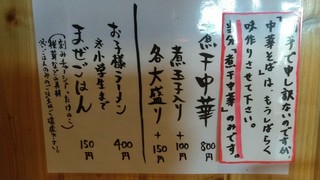 手で申し訳ないのですが、
「中華そば」は、もうしばらく
味作りさせて下さい。
当分「煮干中華」のみです。
煮干中華 800円
煮玉子入り +100円
各大盛り +150円
お子様ラーメン 400円
※小学生まで
まぜごはん 150円